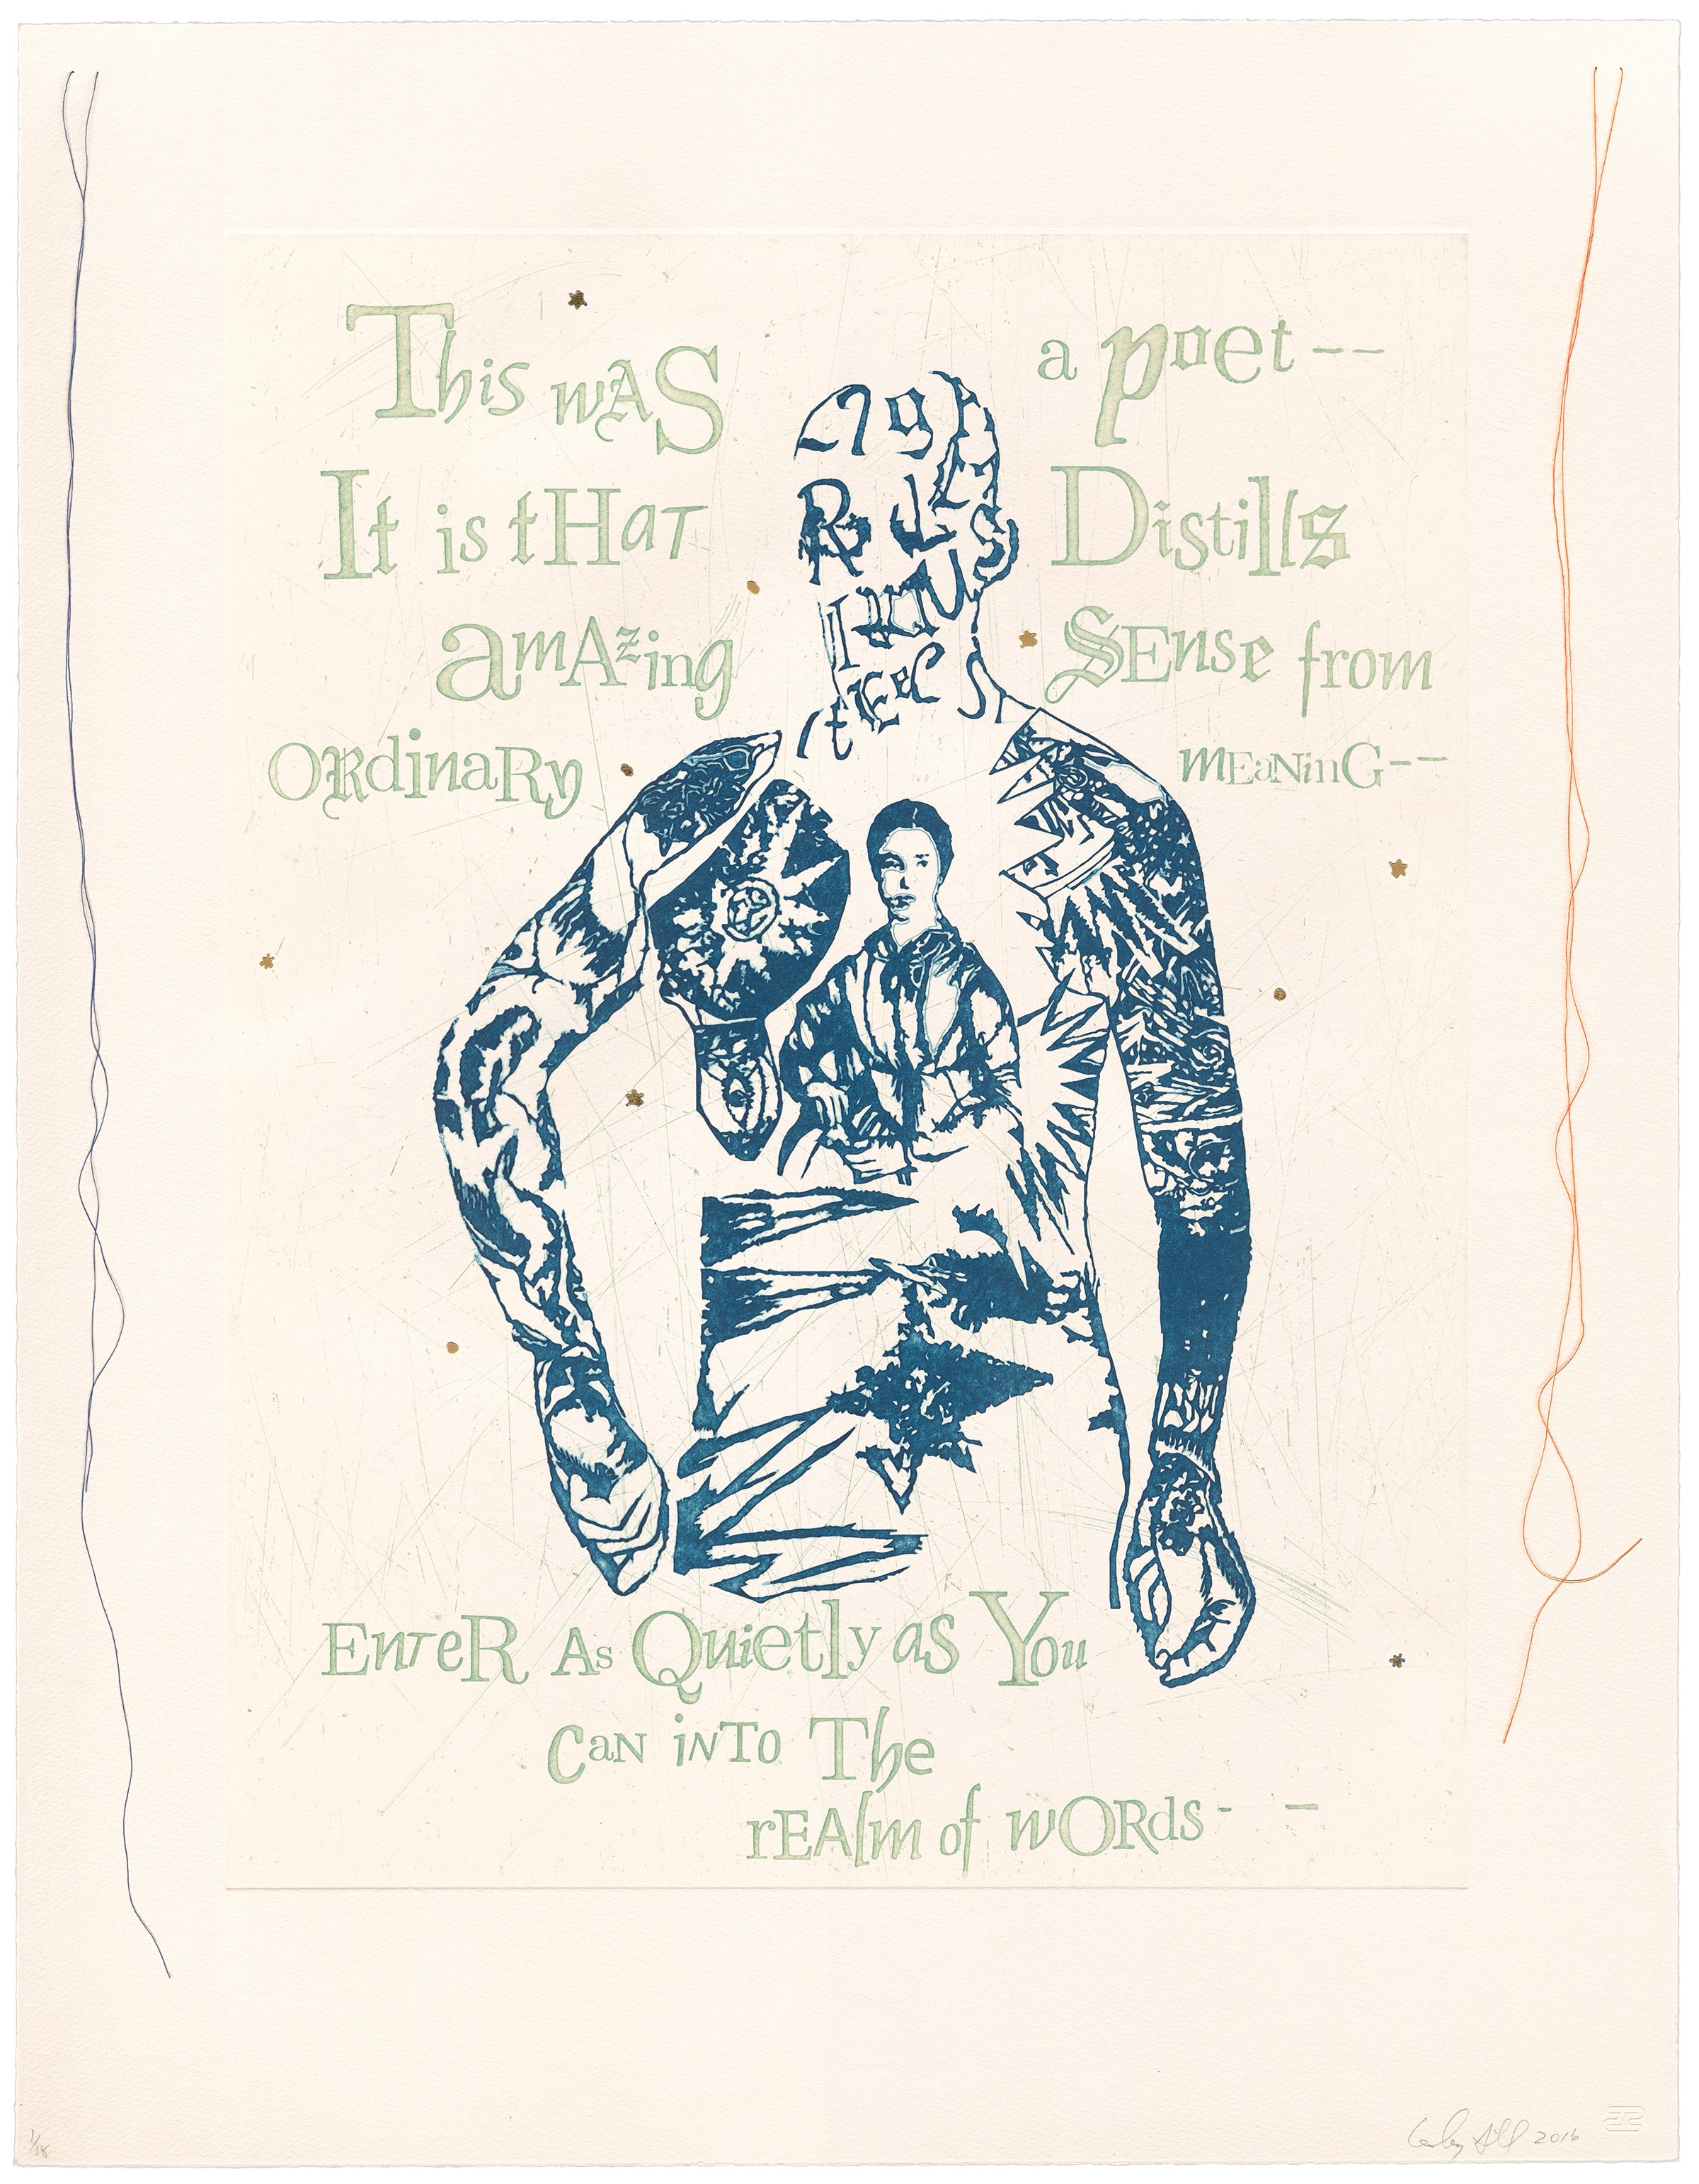 This wAS a poet--
It is tHaT Distills
amAzing SEnse from
ORdinaRy mEaNinG--
EnTeR As Quietly as You
CaN iNTo The
rEAlm of wORds- -
1/18
Lesley Dill 2016